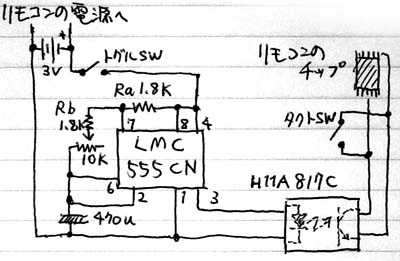 リモコンの電源へ
+
3V
トグルSW
リモコンの
チップ
Ra 1.8K
Rb
1.8K
7
8
4
タクトSW
10K
LMC
555CN
6
2
1
3
H11A817C
470u